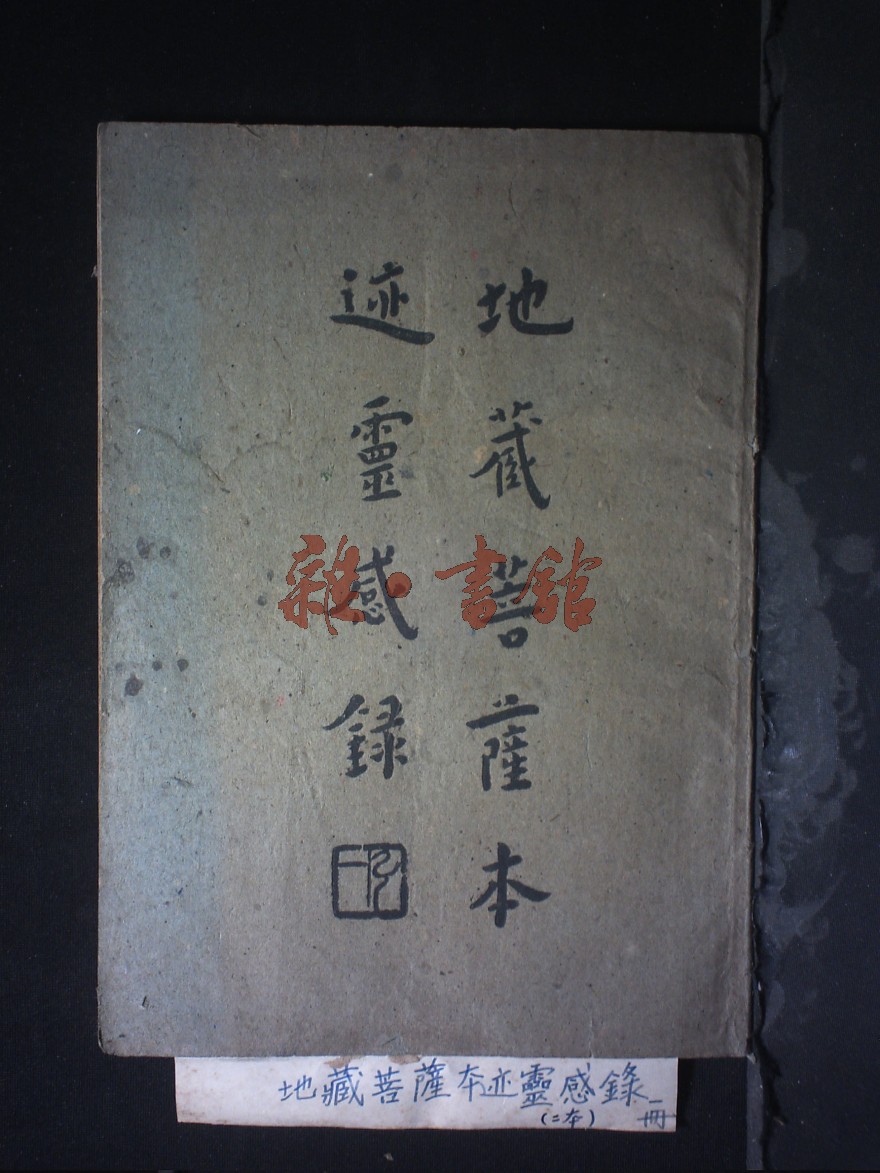 地藏菩薩本
迹靈感録
雜·書館
地藏菩薩本迹靈感錄一冊
(二本)